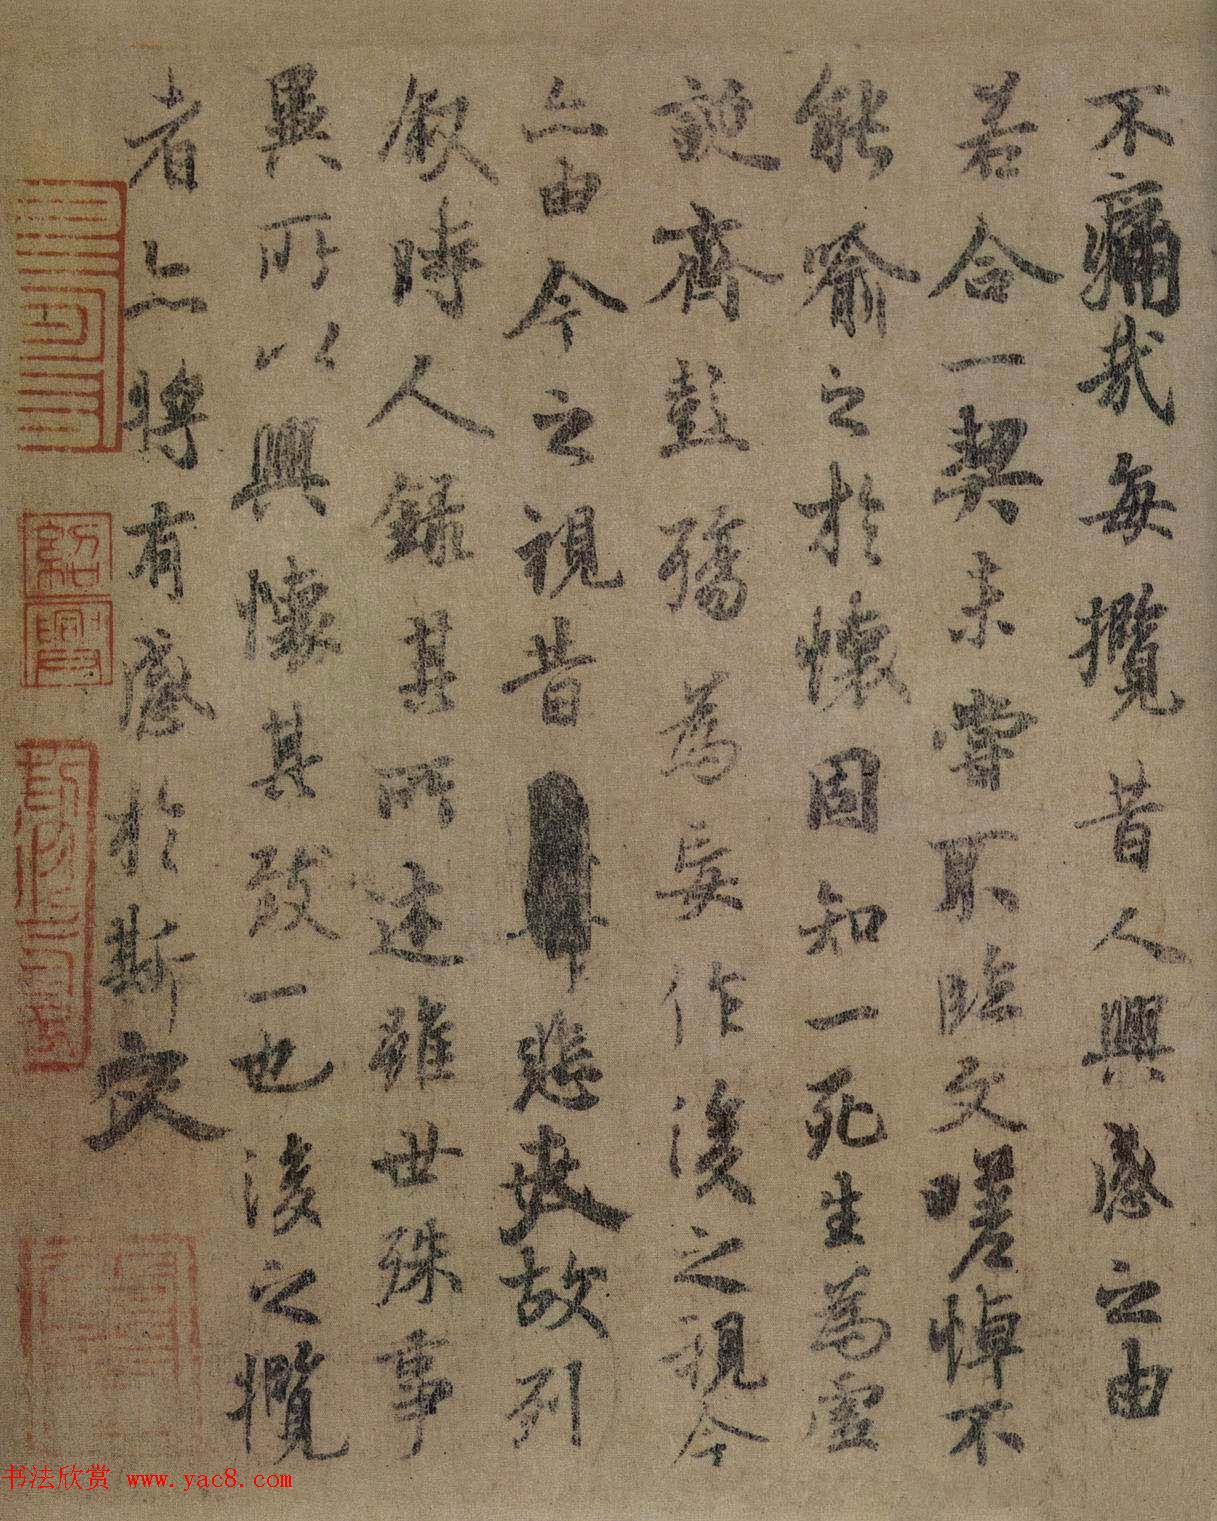 不痛哉每攬昔人興感之由
若合一契未嘗不臨文嗟悼不
能喻之於懷固知一死生為虛
誕齊彭殤為妄作後之視今
亦由今之視昔悲夫故列
敘時人錄其所述雖世殊事
異所以興懷其致一也後之攬
者亦將有感於斯文
书法欣赏 www.yac8.com